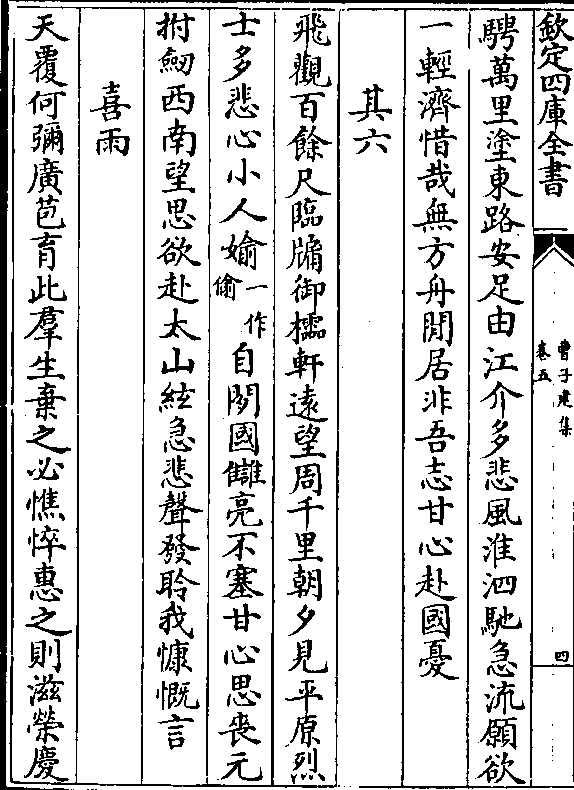 欽定四庫全書
曹子建集
卷五
四
騁萬里塗東路安足由江介多悲風淮泗馳急流願欲
一輕濟惜哉無方舟閒居非吾志甘心赴國憂
其六
飛觀百餘尺臨牖御櫺軒遠望周千里朝夕見平原烈
士多悲心小人婾一作偷自閑國讎亮不塞甘心思喪元
拊劒西南望思欲赴太山絃急悲聲發聆我慷慨言
喜雨
天覆何彌廣苞育此羣生棄之必憔悴惠之則滋榮慶